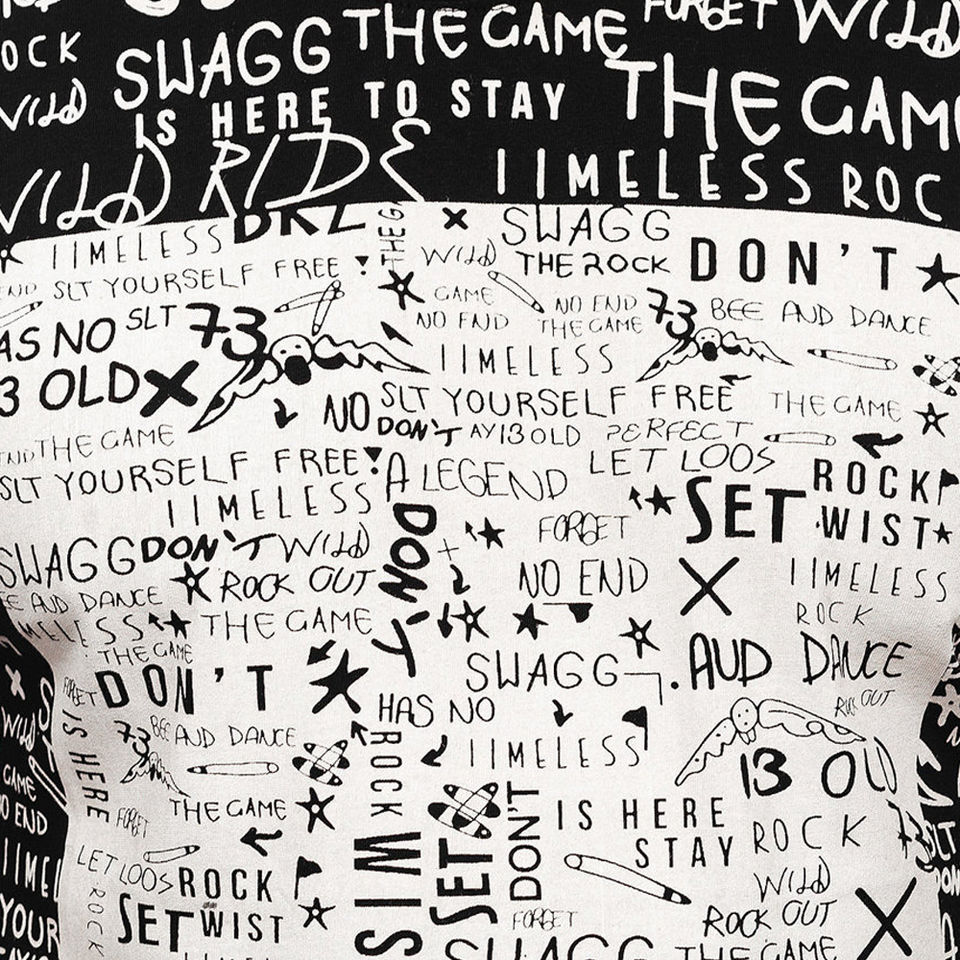 FORGET WILD
OCK SWAGG THE GAME
WILD IS HERE TO STAY THE GAM
WILD RIDE IIMELESS ROC
IIMELESS DRL THE G SWAGG
WILD THE ROCK DON'T
END SLT YOURSELF FREE
GAME NO END 73 BEE AND DANCE
AS NO SLT 73 NO END THE GAME
IIMELESS
3 OLD
NO SLT YOURSELF FREE THE GAME
END THE GAME DON'T AY13OLD PERFECT
SLT YOURSELF FREE A LEGEND LET LOOS ROCK
IIMELESS SET WIST
SWAGG DON'T WILD DON'T FORGET
ROCK OUT NO END IIMELESS
E AUD DANCE ROCK
MELESS THE GAME
THE GAME SWAGG .AUD DANCE
FORGET DON'T HAS NO OUT
IS HERE 73 BEE AND DANCE ROCK IIMELESS 13 OLD
WILD
GAME THE GAME IS HERE
O END FORGET DON'T STAY ROCK
IIMEL LET LOOS ROCK WIS SET WILD
YOUR ROCK SET WIST FORGET ROCK OUT
SWAGG THE GAME
SLT
DON